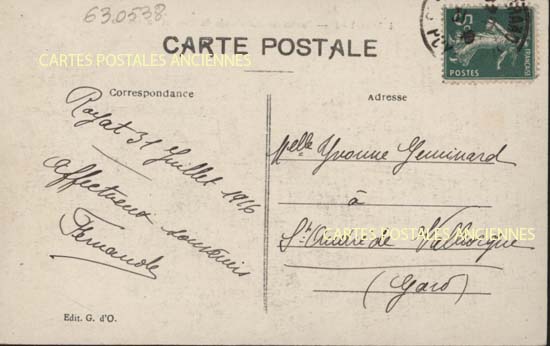 63.0538
CARTE POSTALE
CARTES POSTALES ANCIENNES
Correspondance
Adresse
5c
POSTES
Royat 31 Juillet 1916
Affectueux souvenirs
Fernande
Melle Yvonne Geminard
à
St André de Valborgne
CARTES POSTALES ANCIENNES
(Gard)
Edit. G. d'O.